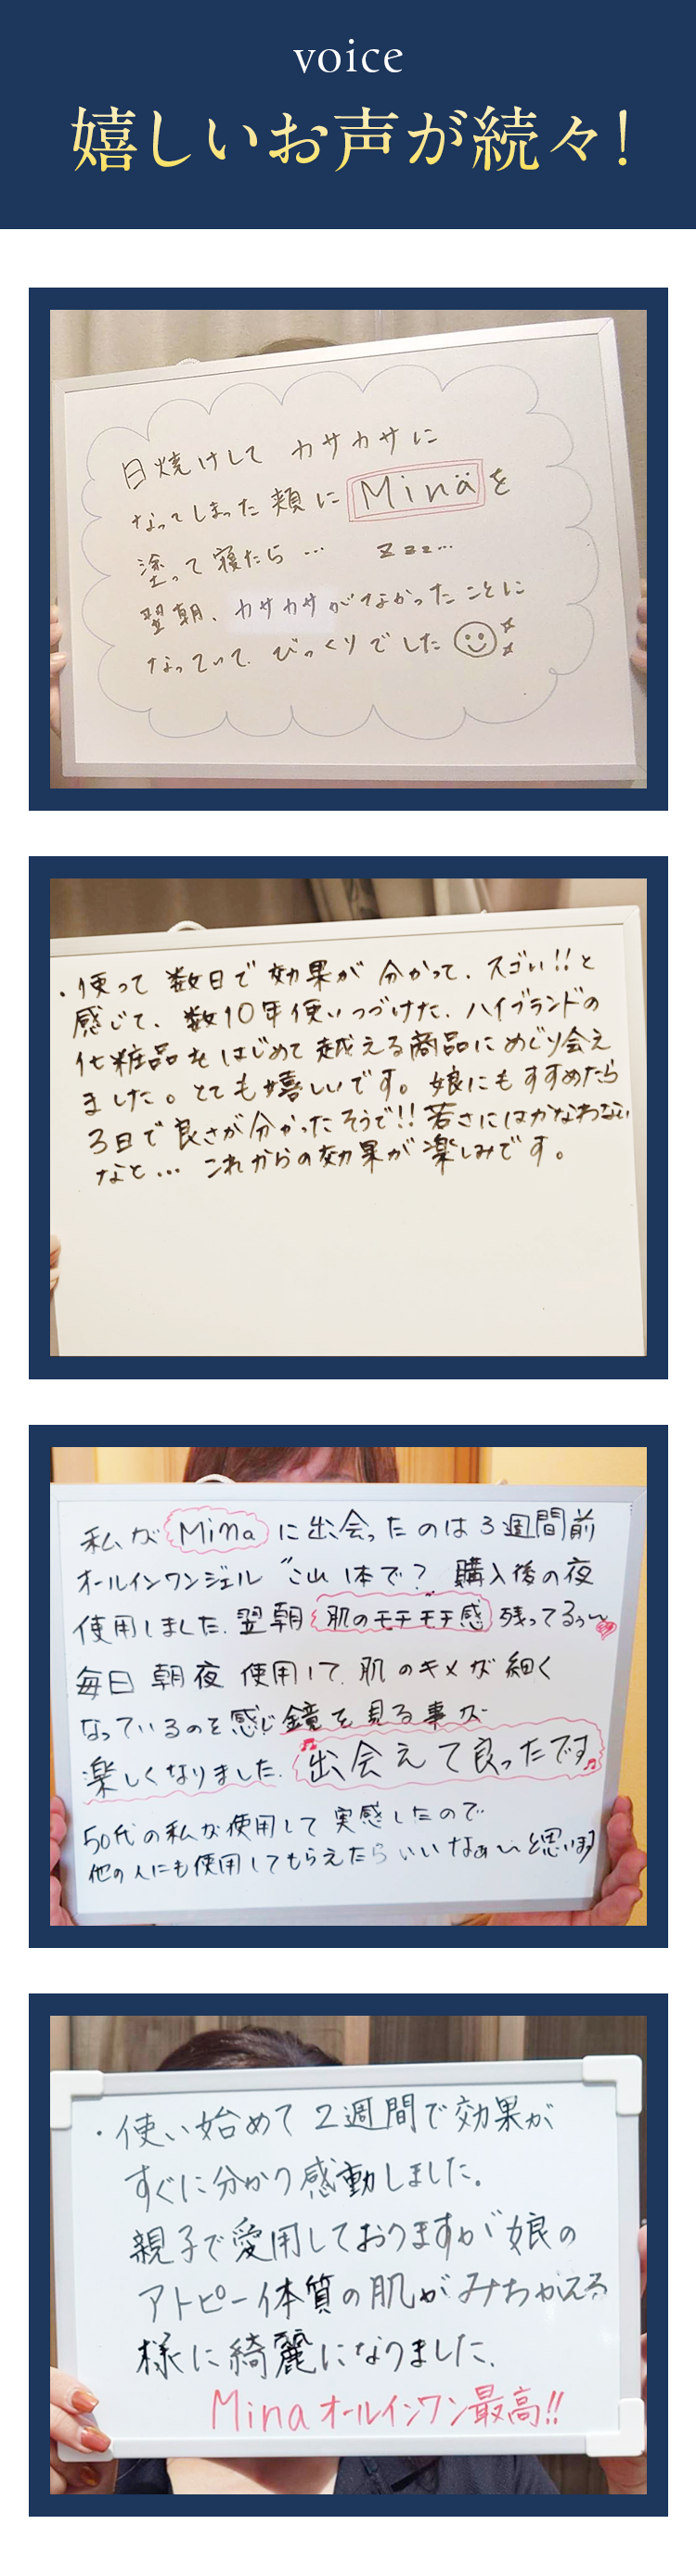 voice
嬉しいお声が続々!
日焼けして カサカサに
なってしまった 頬に Minäを
塗って 寝たら… zzz…
翌朝、カサカサがなかったことに
なっていて、びっくりでした
・使って 数日で 効果が 分かって、スゴい!!と
感じて、数10年使いつづけた、ハイブランドの
化粧品を はじめて 越える商品に めぐり会え
ました。とても嬉しいです。娘にもすすめたら
3日で良さが分かったそうで!!若さにはかなわない
なと… これからの効果が楽しみです。
私が Mina に出会ったのは3週間前
オールインワンジェル 〝これ1本で? 購入後の夜
使用しました。翌朝 肌のモチモチ感 残ってるぅ〜
毎日 朝夜 使用して、肌のキメが 細く
なっているのを感じ 鏡を見る事が
楽しくなりました。出会えて良ったです
50代の私が使用して 実感したので
他の人にも使用してもらえたらいいなぁ〜と思います
・使い始めて 2週間で効果が
すぐに分かり感動しました。
親子で愛用しておりますが 娘の
アトピー体質の肌が みちがえる
様に綺麗になりました、
Minaオールインワン最高!!